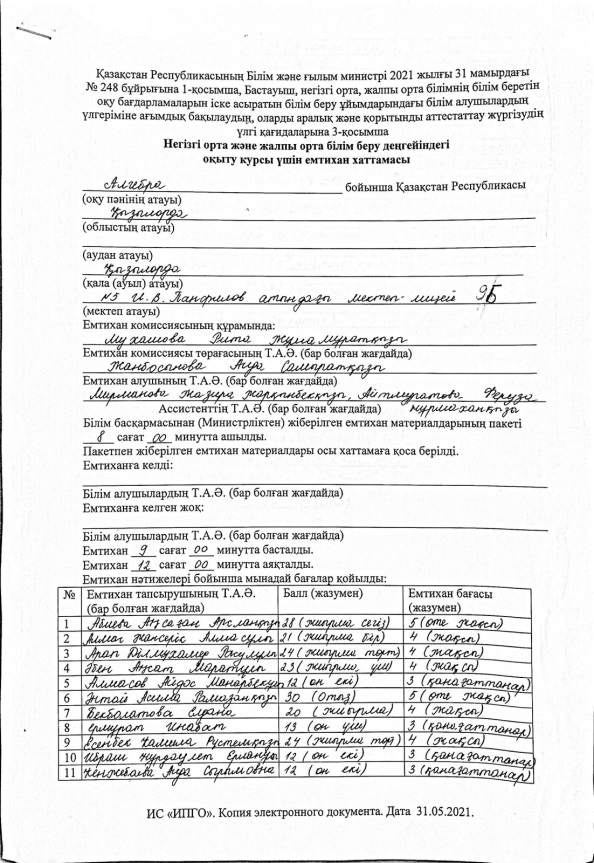 Қазақстан Республикасының Білім және ғылым министрі 2021 жылғы 31 мамырдағы
№ 248 бұйрығына 1-қосымша, Бастауыш, негізгі орта, жалпы орта білімнің білім беретін
оқу бағдарламаларын іске асыратын білім беру ұйымдарындағы білім алушылардың
үлгеріміне ағымдық бақылаудың, оларды аралық және қорытынды аттестаттау жүргізудің
үлгі қағидаларына 3-қосымша
Негізгі орта және жалпы орта білім беру деңгейіндегі
оқыту курсы үшін емтихан хаттамасы
Алгебра бойынша Қазақстан Республикасы
(оқу пәнінің атауы)
Қызылорда
(облыстың атауы)
(аудан атауы)
Қызылорда
(қала (ауыл) атауы)
№5 И.В. Панфилов атындағы мектеп-лицей 9Б
(мектеп атауы)
Емтихан комиссиясының құрамында:
Мухашова Рита Жұмамұратқызы
Емтихан комиссиясы төрағасының Т.А.Ә. (бар болған жағдайда)
Жанбосынова Ауда Сампратқызы
Емтихан алушының Т.А.Ә. (бар болған жағдайда)
Мирманова Жазира Жарқынбекқызы, Айтмуратова Феруза
Ассистенттің Т.А.Ә. (бар болған жағдайда) Нұрмаханқызы
Білім басқармасынан (Министрліктен) жіберілген емтихан материалдарының пакеті
8 сағат 00 минутта ашылды.
Пакетпен жіберілген емтихан материалдары осы хаттамаға қоса берілді.
Емтиханға келді:
Білім алушылардың Т.А.Ә. (бар болған жағдайда)
Емтиханға келген жоқ:
Білім алушылардың Т.А.Ә. (бар болған жағдайда)
Емтихан 9 сағат 00 минутта басталды.
Емтихан 12 сағат 00 минутта аяқталды.
Емтихан нәтижелері бойынша мынадай бағалар қойылды:
№ Емтихан тапсырушының Т.А.Ә. (бар болған жағдайда) Балл (жазумен) Емтихан бағасы (жазумен)
1 Абиева Ақсазан Арсланқызы 28 (жиырма сегіз) 5 (өте жақсы)
2 Алмас Жансерік Алмасұлы 21 (жиырма бір) 4 (жақсы)
3 Арап Ділмұхамед Расулұлы 24 (жиырма төрт) 4 (жақсы)
4 Әбен Аңсат Маратұлы 23 (жиырма үш) 4 (жақсы)
5 Алмасов Айдос Манарбекұлы 12 (он екі) 3 (қанағаттанар)
6 Энтай Асима Рамазанқызы 30 (Отыз) 5 (өте жақсы)
7 Бекболатова Елдана 20 (жиырма) 4 (жақсы)
8 Ермурат Инабат 13 (он үш) 3 (қанағаттанар)
9 Есенбек Камила Рустемқызы 24 (жиырма төрт) 4 (жақсы)
10 Ибраш Нұрдәулет Ерланұлы 12 (он екі) 3 (қанағаттанар)
11 Кенжебаева Ауда Сырымовна 12 (он екі) 3 (қанағаттанар)
ИС «ИПГО». Копия электронного документа. Дата 31.05.2021.